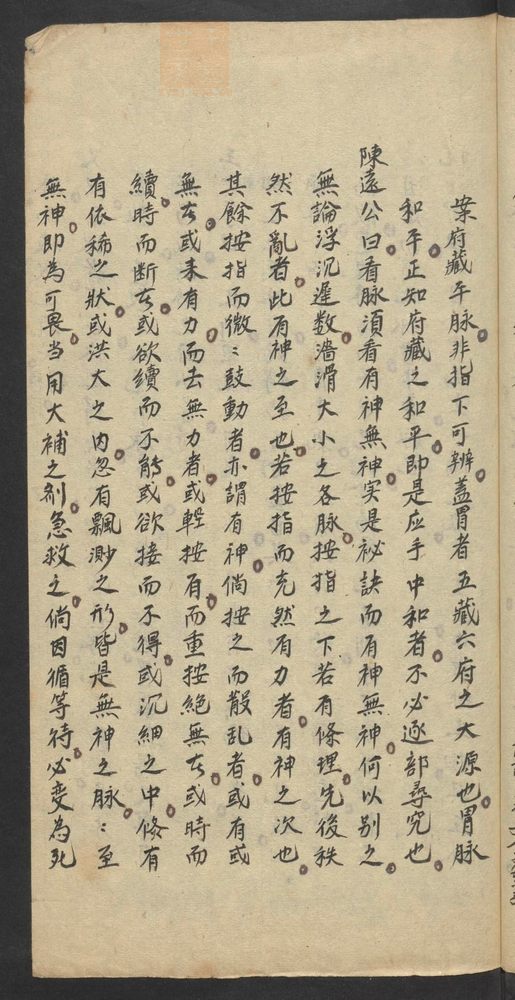 案府藏平脉非指下可辨蓋胃者五藏六府之大源也胃脉
和平正知府藏之和平即是应手中和者不必逐部尋究也
陳遠公曰看脉須看有神無神実是祕訣而有神無神何以别之
無論浮沉遲数濇滑大小之各脉按指之下若有條理先後秩
然不亂者此有神之至也若按指而充然有力者有神之次也
其餘按指而微〻鼓動者亦謂有神倘按之而散乱者或有或
無者或来有力而去無力者或輕按有而重按絶無者或時而
續時而断者或欲續而不能或欲接而不得或沉細之中倐有
有依稀之狀或洪大之内忽有飄渺之形皆是無神之脉〻至
無神即為可畏当用大補之剤急救之倘因循等待必変為死